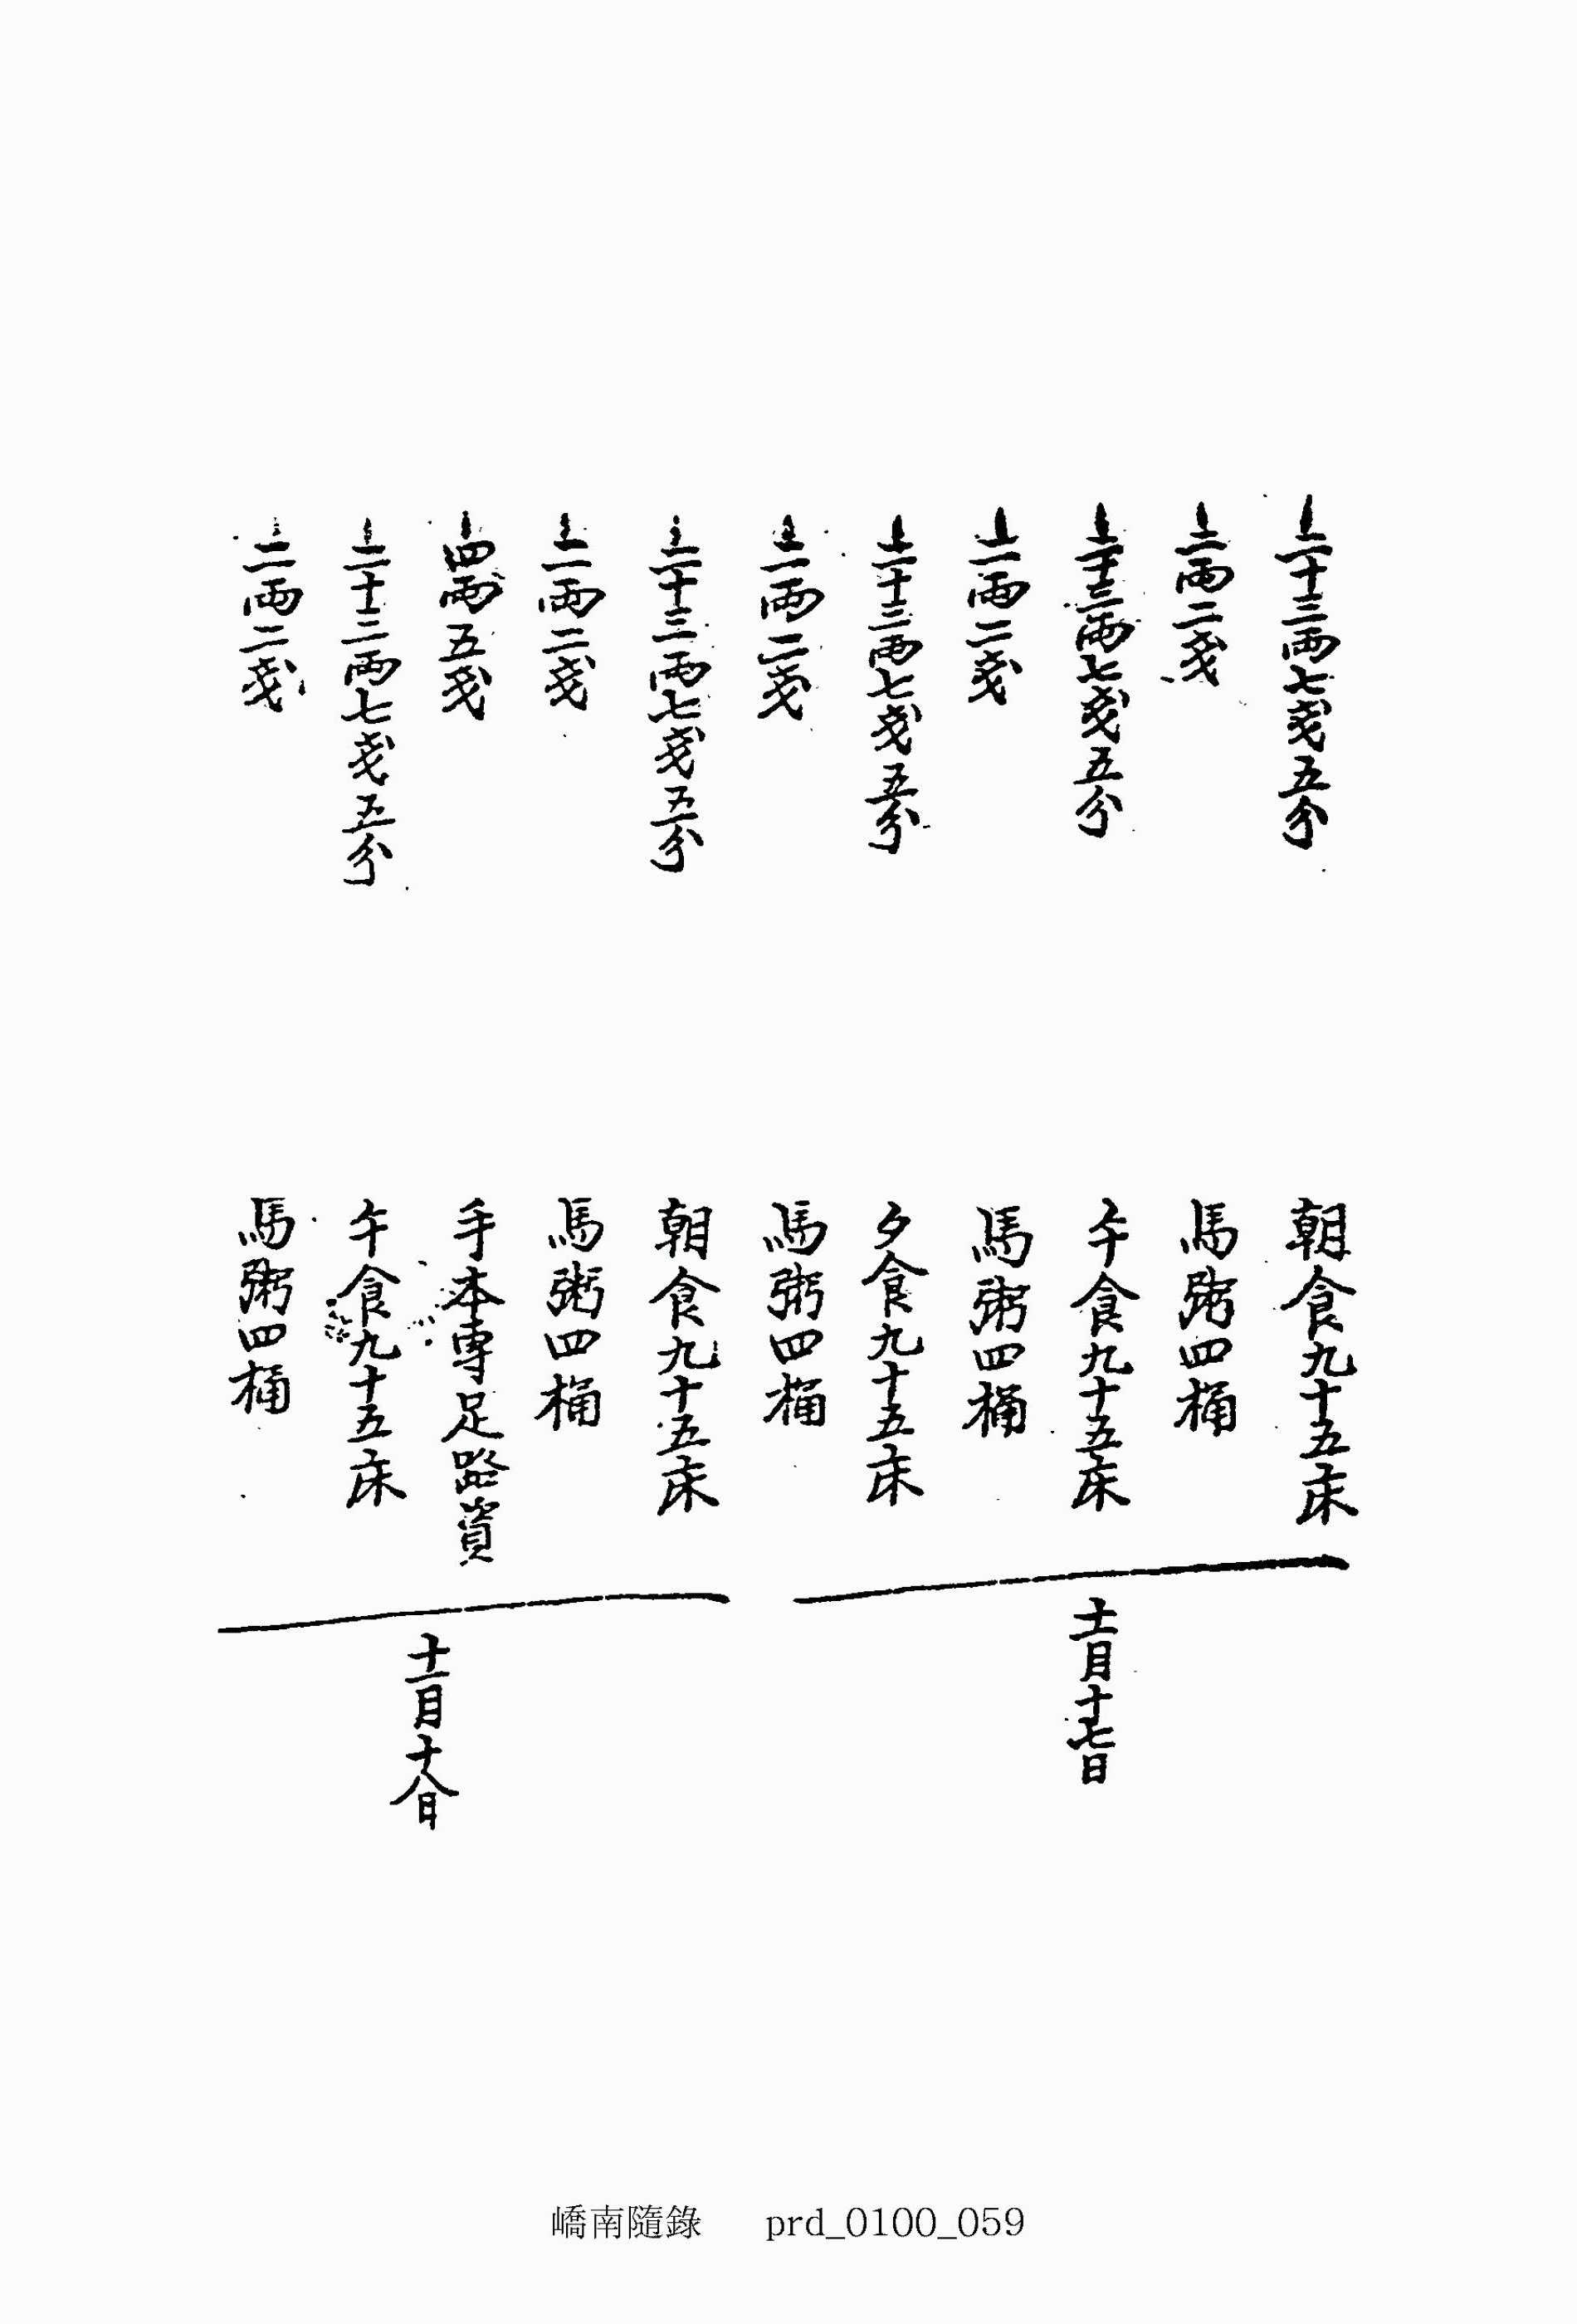 上二十三兩七戔五分 朝食九十五床
上一兩二戔 馬粥四桶
上二十三兩七戔五分 午食九十五床
上一兩二戔 馬粥四桶
上二十三兩七戔五分 夕食九十五床
上一兩二戔 馬粥四桶
十一月十七日
上二十三兩七戔五分 朝食九十五床
上一兩二戔 馬粥四桶
上四兩五戔 手本專足路資
上二十三兩七戔五分 午食九十五床
上一兩二戔 馬粥四桶
十一月十八日
嶠南隨錄 prd_0100_059